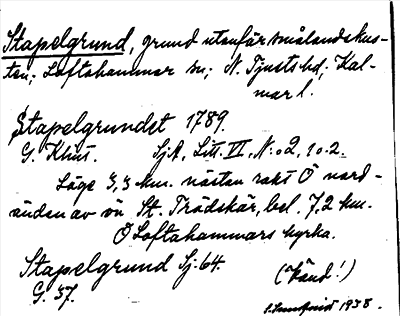 Stapelgrund, grund utanför smålandskus-
ten; Loftahammar sn; N. Tjusts hd; Kal-
mar l.
Stapelgrundet 1789.
G. Klint. SjA, Litt. VI, N:o 2, 10.2.
Läge 3,3 km. nästan rakt Ö nord-
änden av ön St. Trädskär, bel. 7,2 km.
Ö Loftahammars kyrka.
Stapelgrund Sj. 64.
G. 37. (Känd!)
1938.